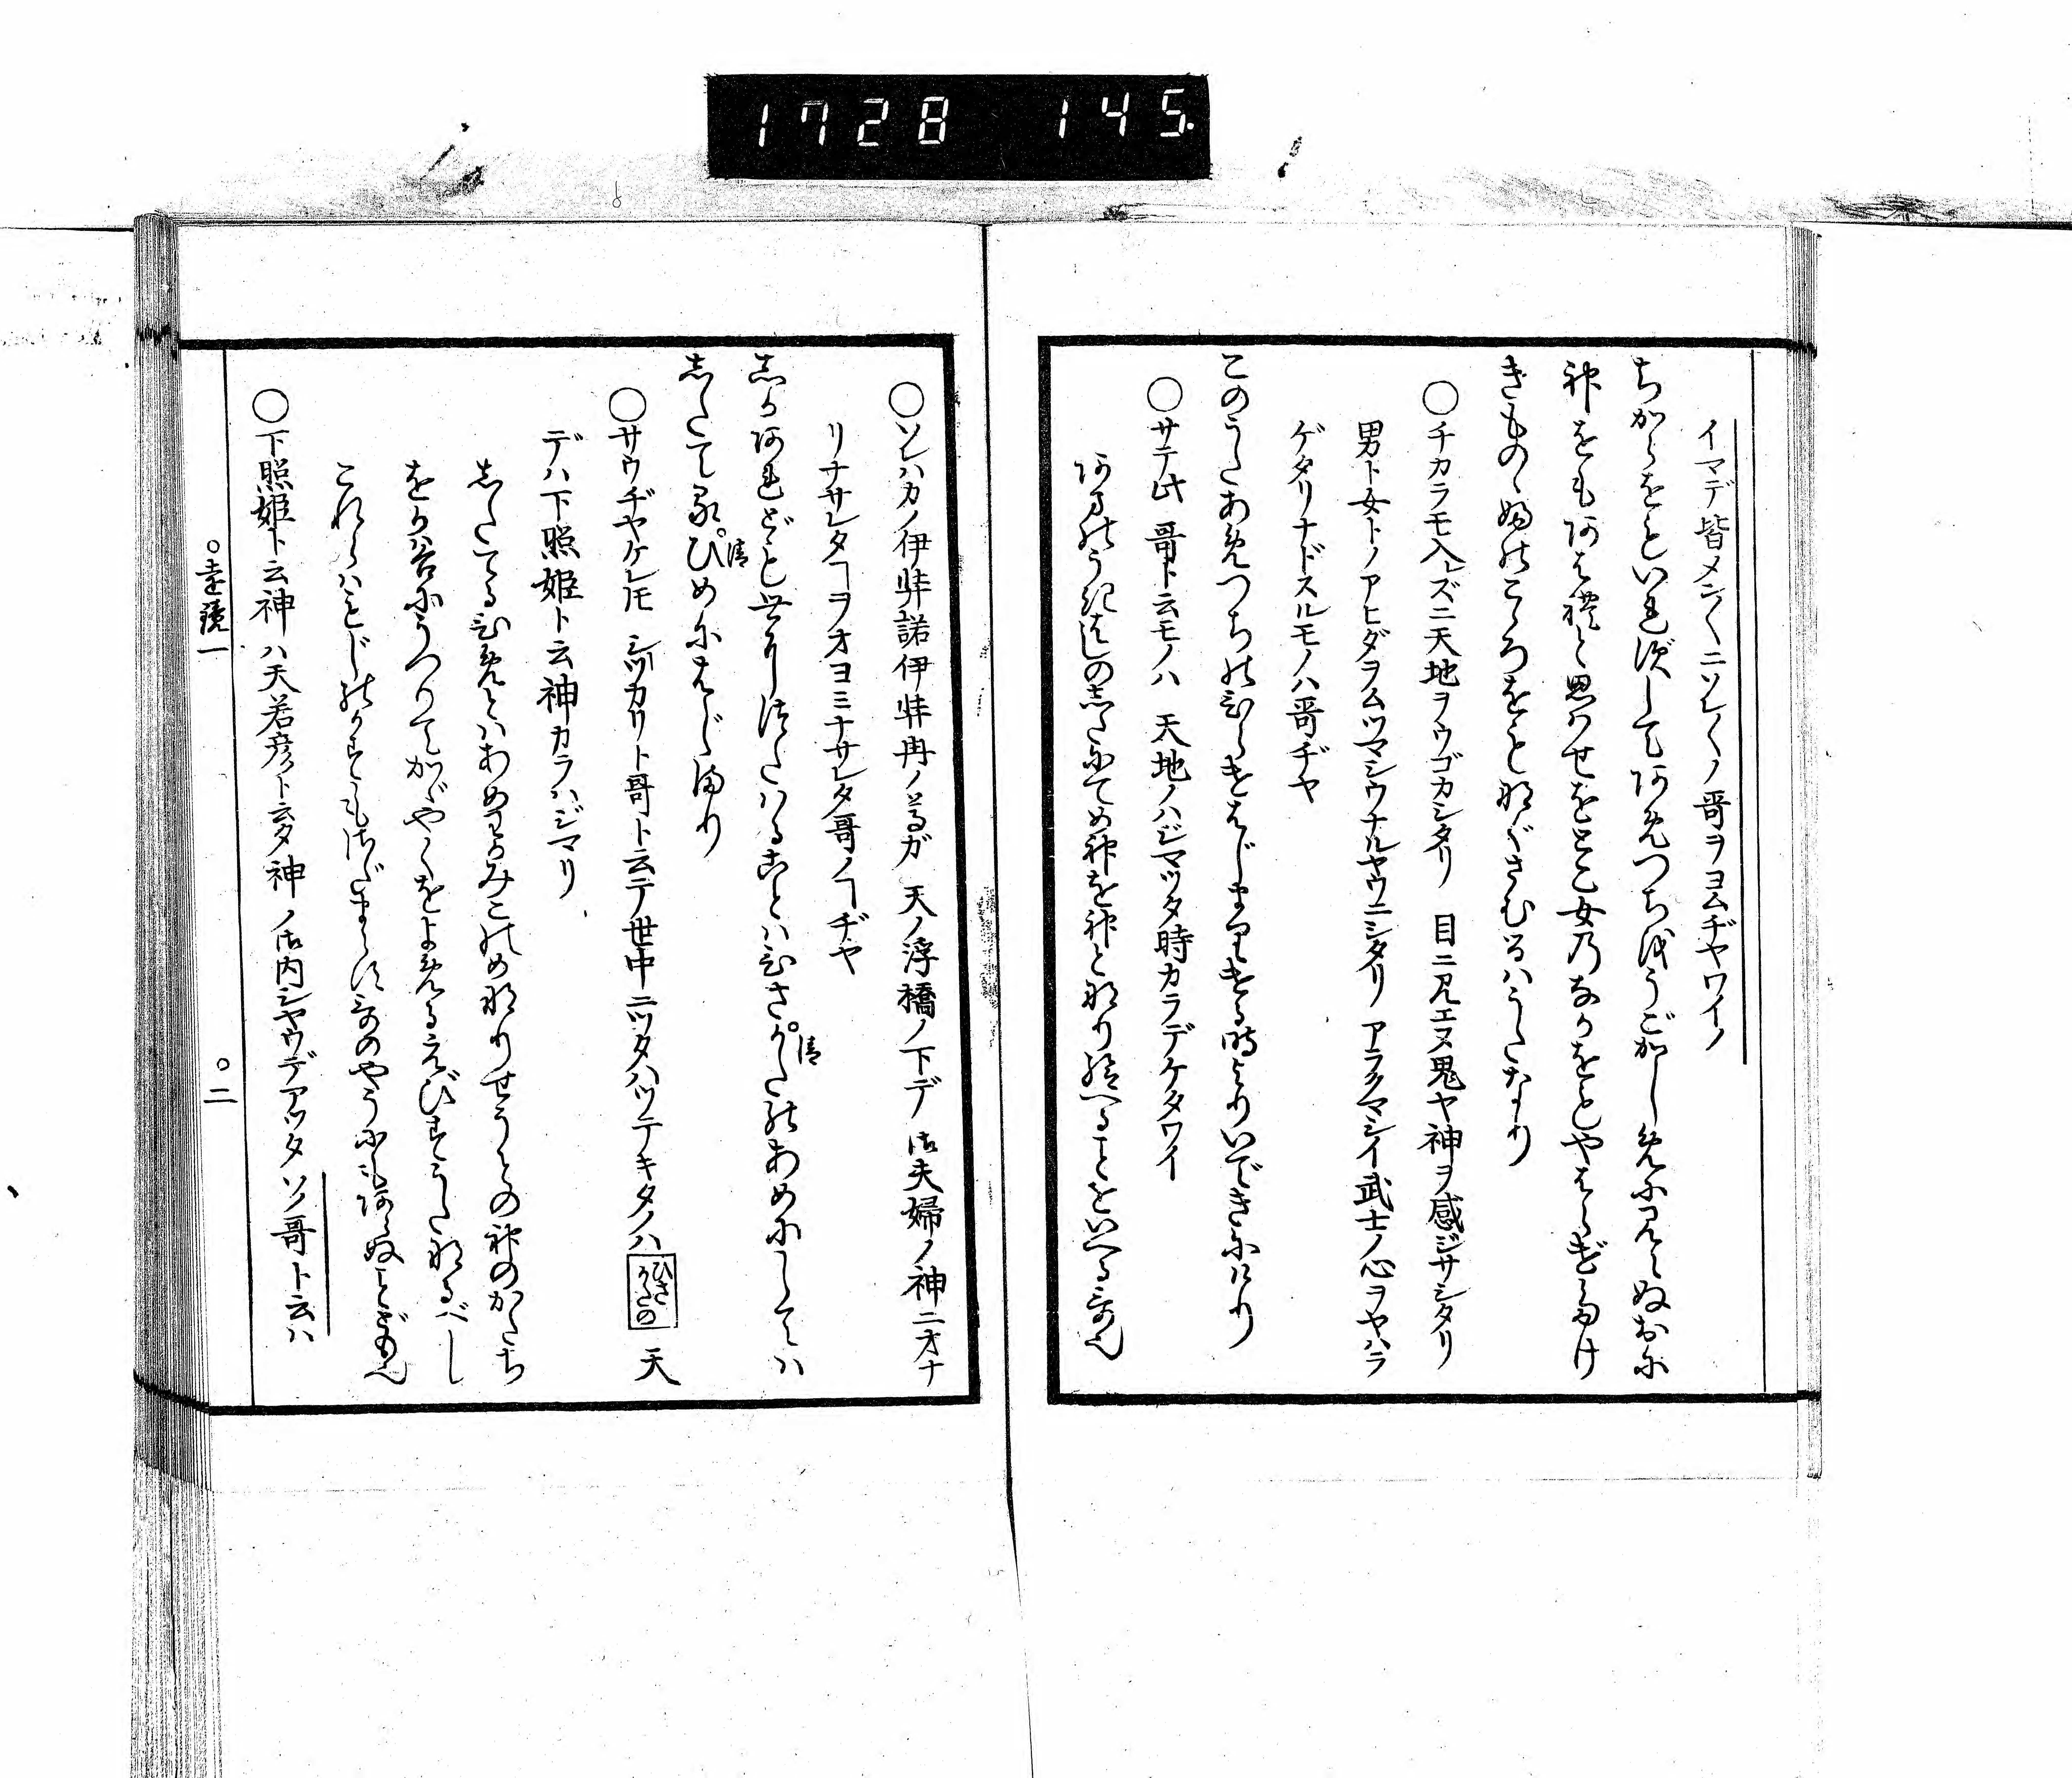 1728 145
イマデ皆メン〱ニソレ〱ノ哥ヲヨムヂヤワイノ
ちからをもいれずしてあめつちをうごかしめに見えぬおに
神をもあはれと思はせをとこ女のなかをもやはらげたけ
きものゝふのこゝろをもなぐさむるはうたなり
○チカラモ入レズニ天地ヲウゴカシタリ 目ニ見エヌ鬼ヤ神ヲ感ジサシタリ
男ト女トノアヒダヲムツマシウナルヤウニシタリ アラクマシイ武士ノ心ヲヤハラ
ゲタリナドスルモノハ哥ヂヤ
このうたあめつちのひらけはじまりける時よりいできにけり
○サテ此哥ト云モノハ 天地ノハジマツタ時カラデケタワイ
あまのうきはしのしたにてめ神を神となり給へることをいへる哥也
○ソレハカノ伊弉諾伊弉冉ノ尊ガ 天ノ浮橋ノ下デ 御夫婦ノ神ニオナ
リナサレタヿヲオヨミナサレタ哥ノヿヂヤ
しかあれども世につたはることはひさかたのあめにしては
清
したてるひめにはじまり
清
○サウヂヤケレㇳモ シツカリト哥ト云テ世中ニツタハツテキタノハ ひさかたの 天
デハ下照姫ト云神カラハジマリ
したてるひめとはあめわかみこのめなりせうとの神のかたち
をか谷にうつりてかゞやくをよめるえびすうたなるべし
これらはもじのかずもさだまらず哥のやうにもあらぬことども也
○下照姫ト云神ハ天若彦ト云タ神ノ御内シヤウデアツタ ソノ哥ト云ハ
○遠鏡一 ○二